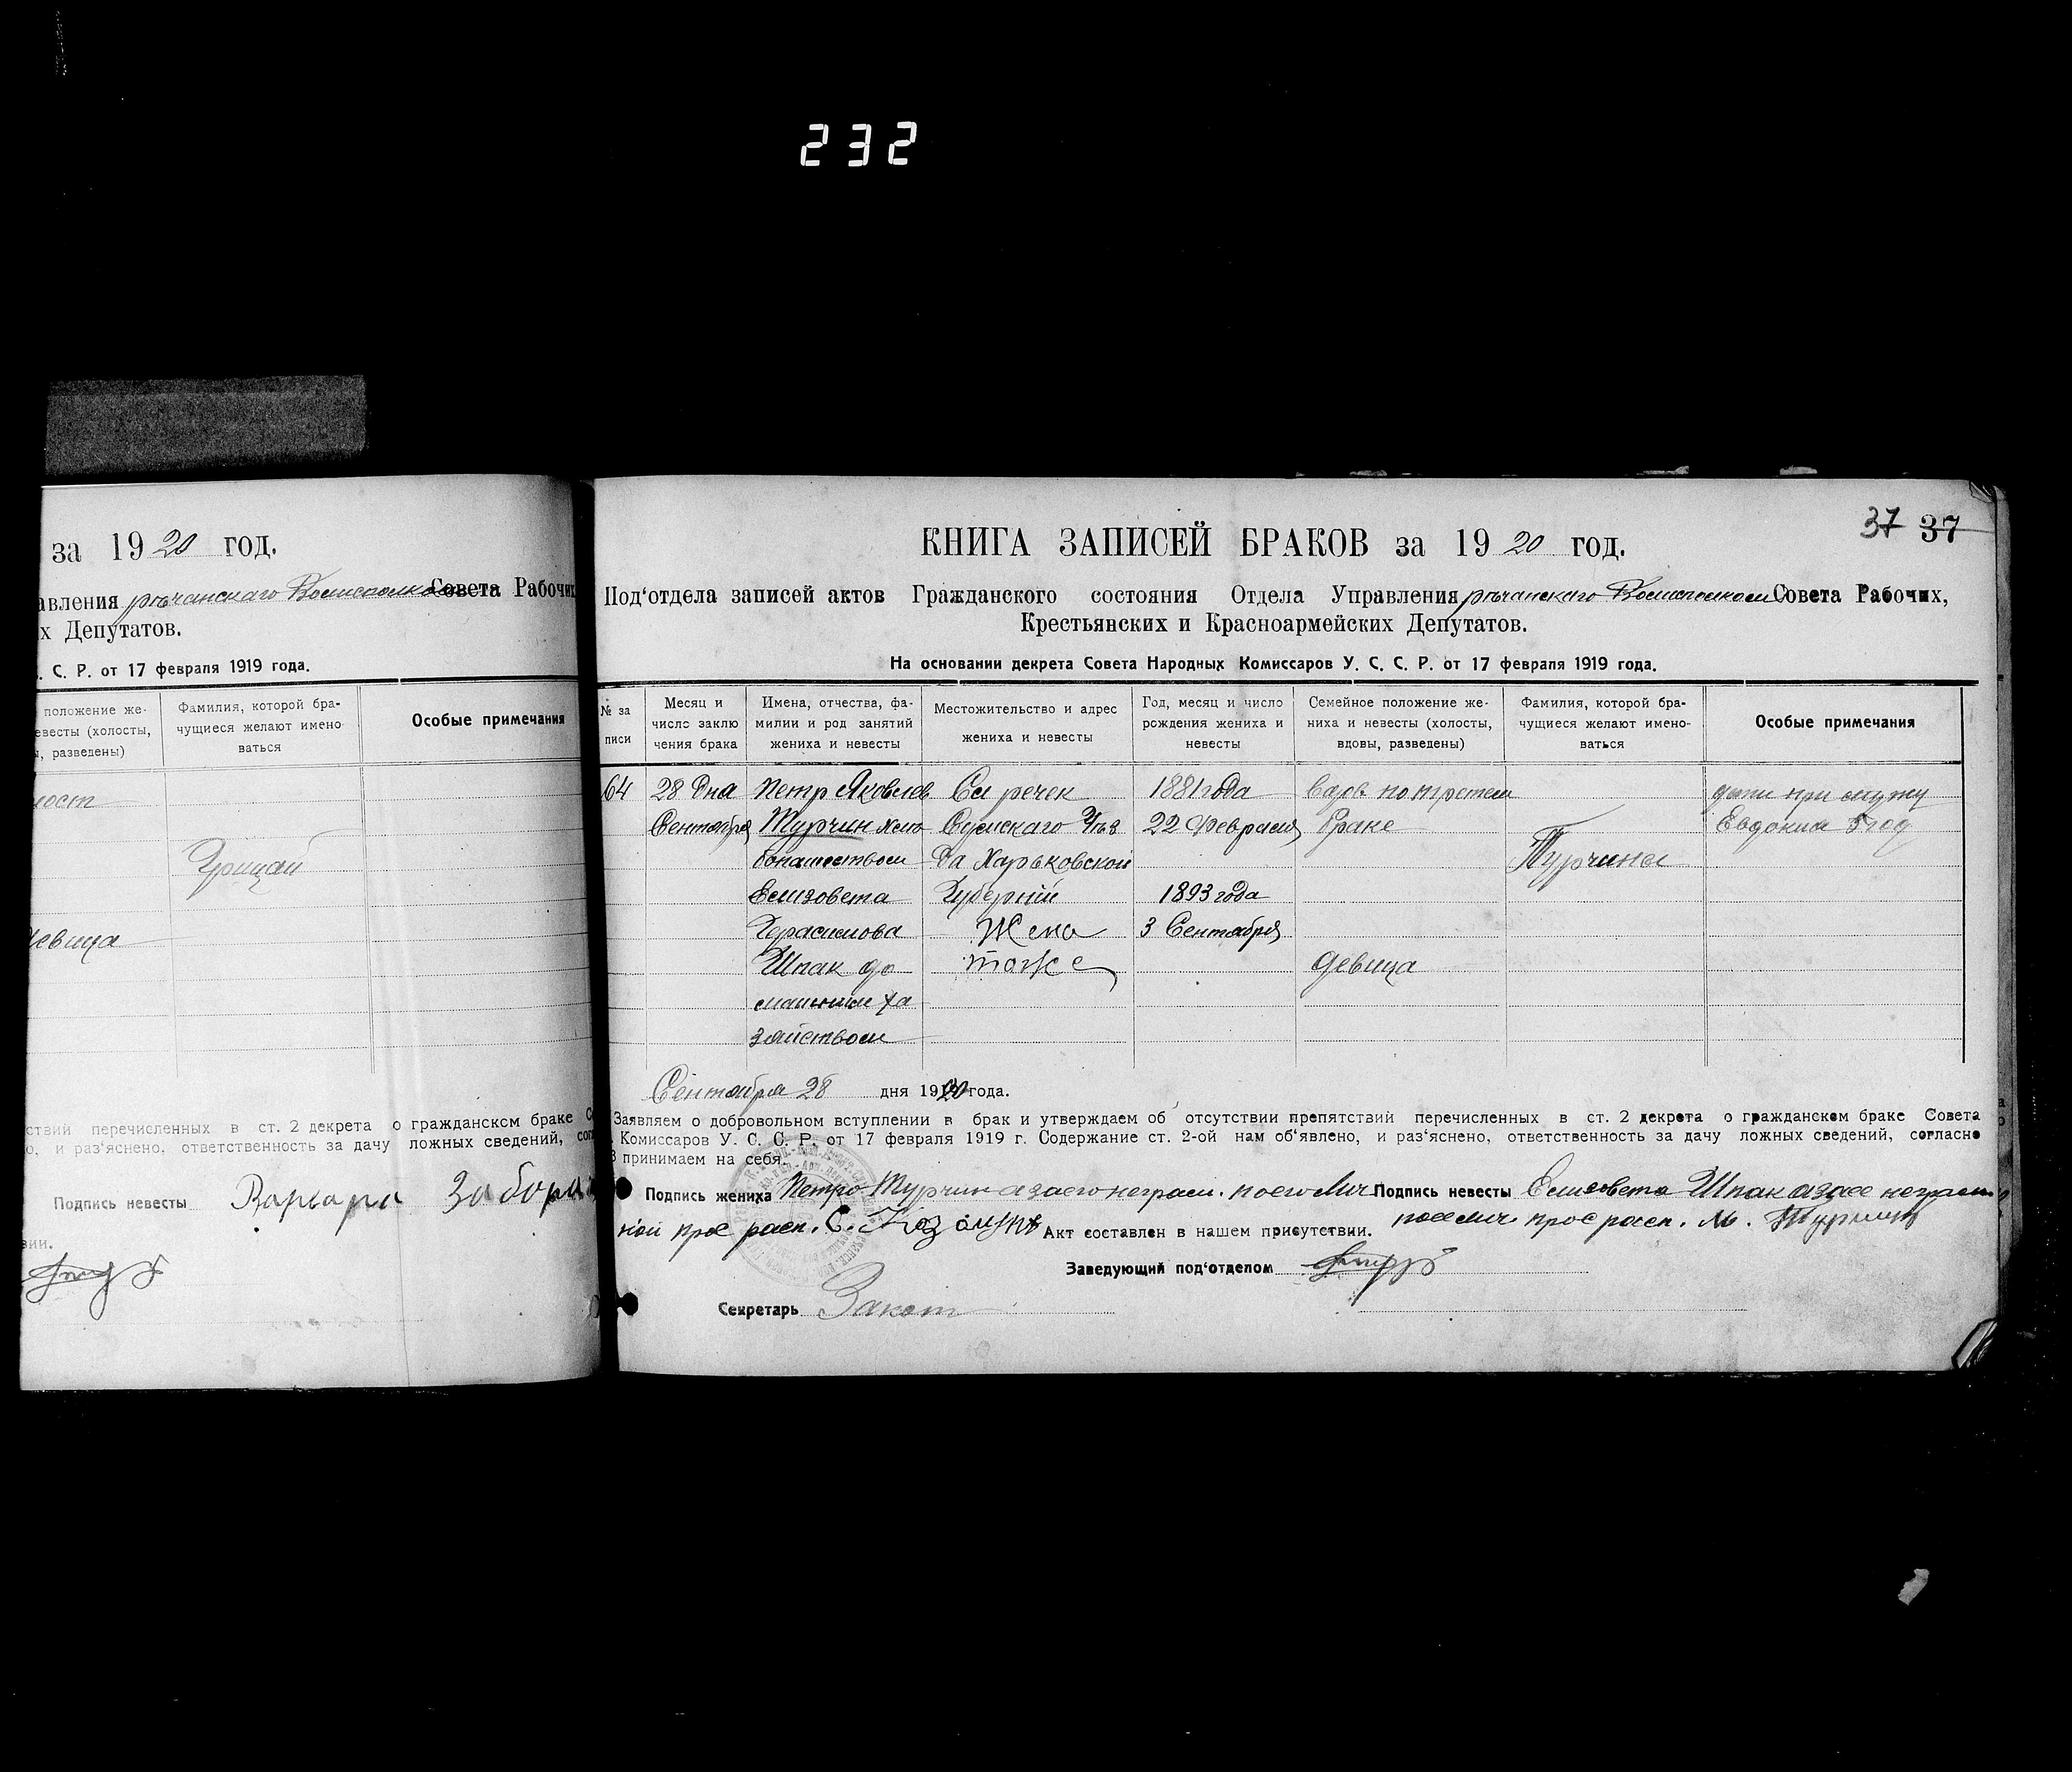 232
за 1920 год.
авления рѣчанскаго Волисполкома Совета Рабочих
х Депутатов.
. С. Р. от 17 февраля 1919 года.
положение же-
евесты (холосты,
ы, разведены)
Фамилия, которой бра-
чущиеся желают имено-
ваться
Особые примечания
лост
Грицай
девица
ствий перечисленных в ст. 2 декрета о гражданском браке С
о, и раз‘яснено, ответственность за дачу ложных сведений, согл
Подпись невесты Варвара
вии.
37 37
КНИГА ЗАПИСЕЙ БРАКОВ за 1920 год.
Под‘отдела записей актов Гражданского состояния Отдела Управления рѣчанскаго Волисполком Совета Рабочих,
Крестьянских и Красноармейских Депутатов.
На основании декрета Совета Народных Комиссаров У. С. С. Р. от 17 февраля 1919 года.
№ за
писи
Месяц и
число заклю
чения брака
Имена, отчества, фа-
милии и род занятий
жениха и невесты
Местожительство и адрес
жениха и невесты
Год, месяц и число
рождения жениха и
невесты
Семейное положение же-
ниха и невесты (холосты,
вдовы, разведены)
Фамилия, которой бра-
чущиеся желают имено-
ваться
Особые примечания
64 28 Дня Петр Яковлев Сл речек 1881 года по третем дети при мужу
Сентября Турчин хле Сумскаго Уѣз 22 Февраля браке Евдокия 5 год
бопашеством да Харьковской Турчина
Елизовета Губерніи 1893 года
Герасимова Жена 3 Сентября
Шпак до тоже девица
машним ха
зяйством
Сентября 28 дня 1920 года.
Заявляем о добровольном вступлении в брак и утверждаем об отсутствии препятствий перечисленных в ст. 2 декрета о гражданском браке Совета
Комиссаров У. С. С. Р. от 17 февраля 1919 г. Содержание ст. 2-ой нам об‘явлено, и раз‘яснено, ответственность за дачу ложных сведений, согласно
3 принимаем на себя.
Подпись жениха Петро Турчин а за его неграм. по его лич Подпись невесты Елизовета Шпак а за ее неграм.
ной прос расп. С. Акт составлен в нашем присутствии. по ее лич прос расп. М.
Заведующий под‘отделом
Секретарь